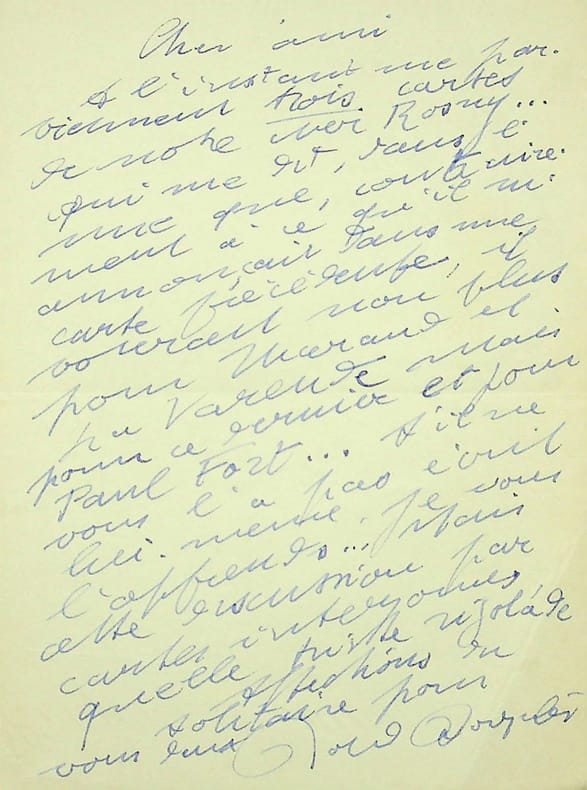 Cher ami
A l'instant me par-
viennent trois cartes
de notre cher Rosny...
qui me dit, dans l'
une que, contraire-
ment à ce qu'il m'
annonçait dans une
carte précédente, il
voterait non plus
pour Marand et
La Varende mais
pour ce dernier et pour
Paul Fort... S'il ne
vous l'a pas écrit
lui-même, je vous
l'apprends... Mais
cette discussion par
cartes interzones,
quelle triste rigolade
Affections du
solitaire pour
vous deux